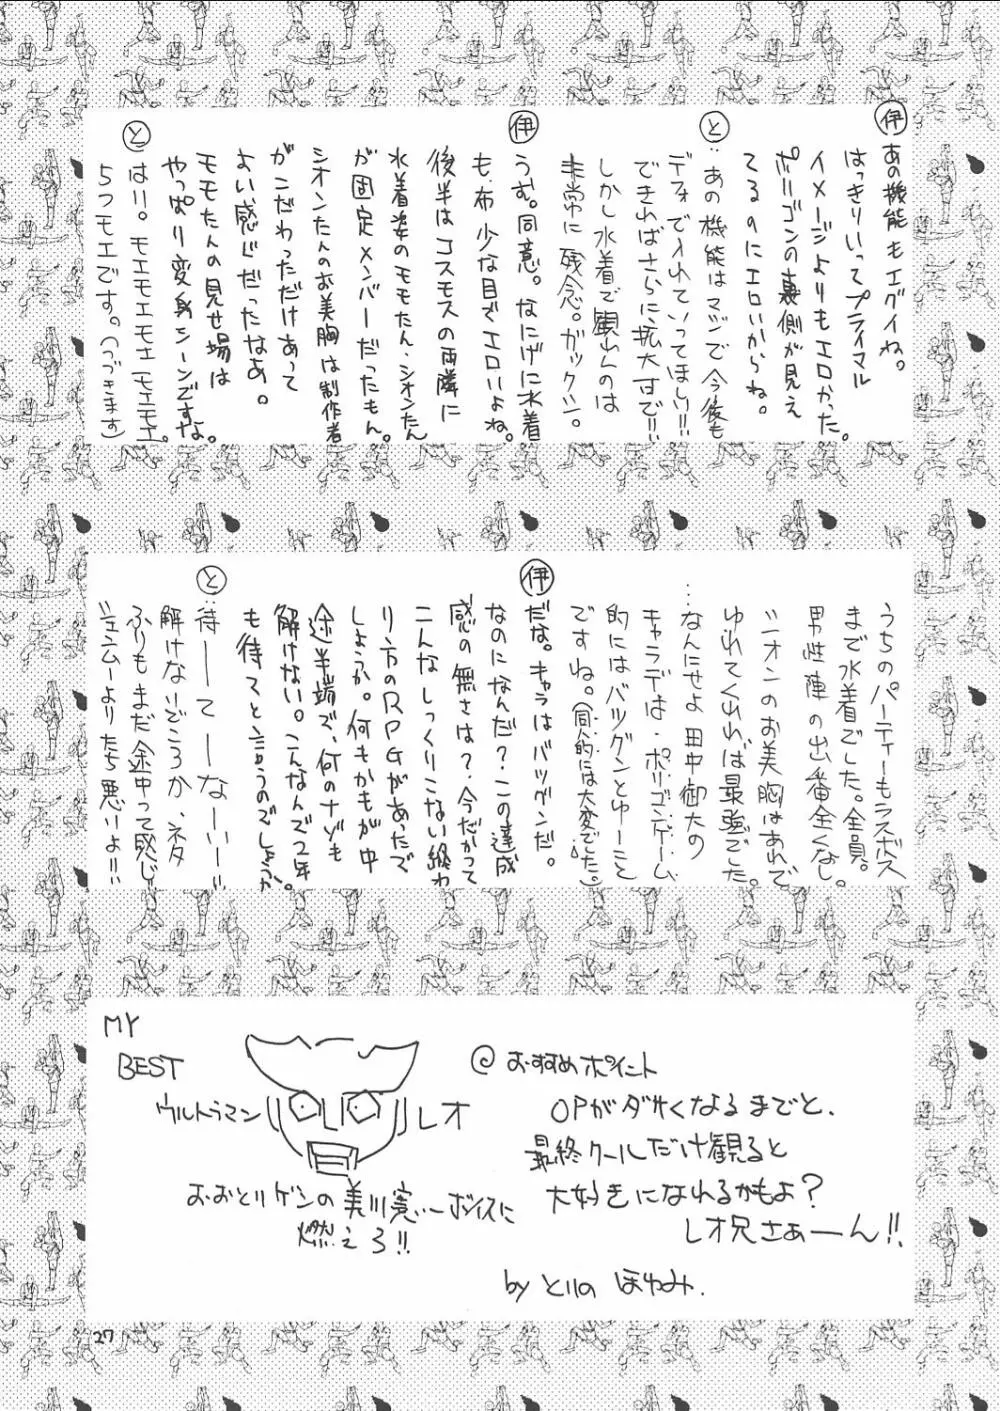 伊 あの機能もエグイね。
はっきりいってプライマル
イメージよりもエロかった。
ポリゴンの裏側が見え
てるのにエロいからね。
と :あの機能はマジで今後も
デフォで入れていってほしい!!
できればさらに拡大すで!!
しかし水着で観れんのは
非常に残念。ガックシ。
伊 うむ。同意。なにげに水着
も、布少な目でエロいよね。
後半はコスモスの両隣に
水着姿のモモたん・シオンたん
が固定メンバーだったもん。
シオンたんのお美胸は制作者
がこだわっただけあって
よい感じだったなあ。
モモたんの見せ場は
やっぱり変身シーンですな。
と はい。モエモエモエモエモエ。
5つモエです。(つづきます)
うちのパーティーもラスボス
まで水着でした。全員。
男性陣の出番全くなし。
シオンのお美胸はあれで
ゆれてくれれば最強でした。
…なんにせよ田中御大の
キャラデは・ポリゴンゲーム
的にはバツグンとゆーこと
ですね。(同人的には大変でした。)
伊 だな。キャラはバツグンだ。
なのになんだ?この達成
感の無さは?今だかつて
こんなしっくりこない終わ
り方のRPGがあったで
しょうか。何もかもが中
途半端で、何のナゾも
解けない。こんなんで2年
も待てと言うのでしょうか。
と :待ーーてーーなーいー!!
解けないどころか、ネタ
ふりもまだ途中って感じ!!
シェンムーよりたち悪いよ!!
MY
BEST
ウルトラマン レオ
おおとりゲンの美川寛ーボイスに
燃えろ!!
@おすすめポイント
OPがダサくなるまでと、
最終クールだけ観ると
大好きになれるかもよ?
レオ兄さぁーん!!
by とりの ほわみ.
27